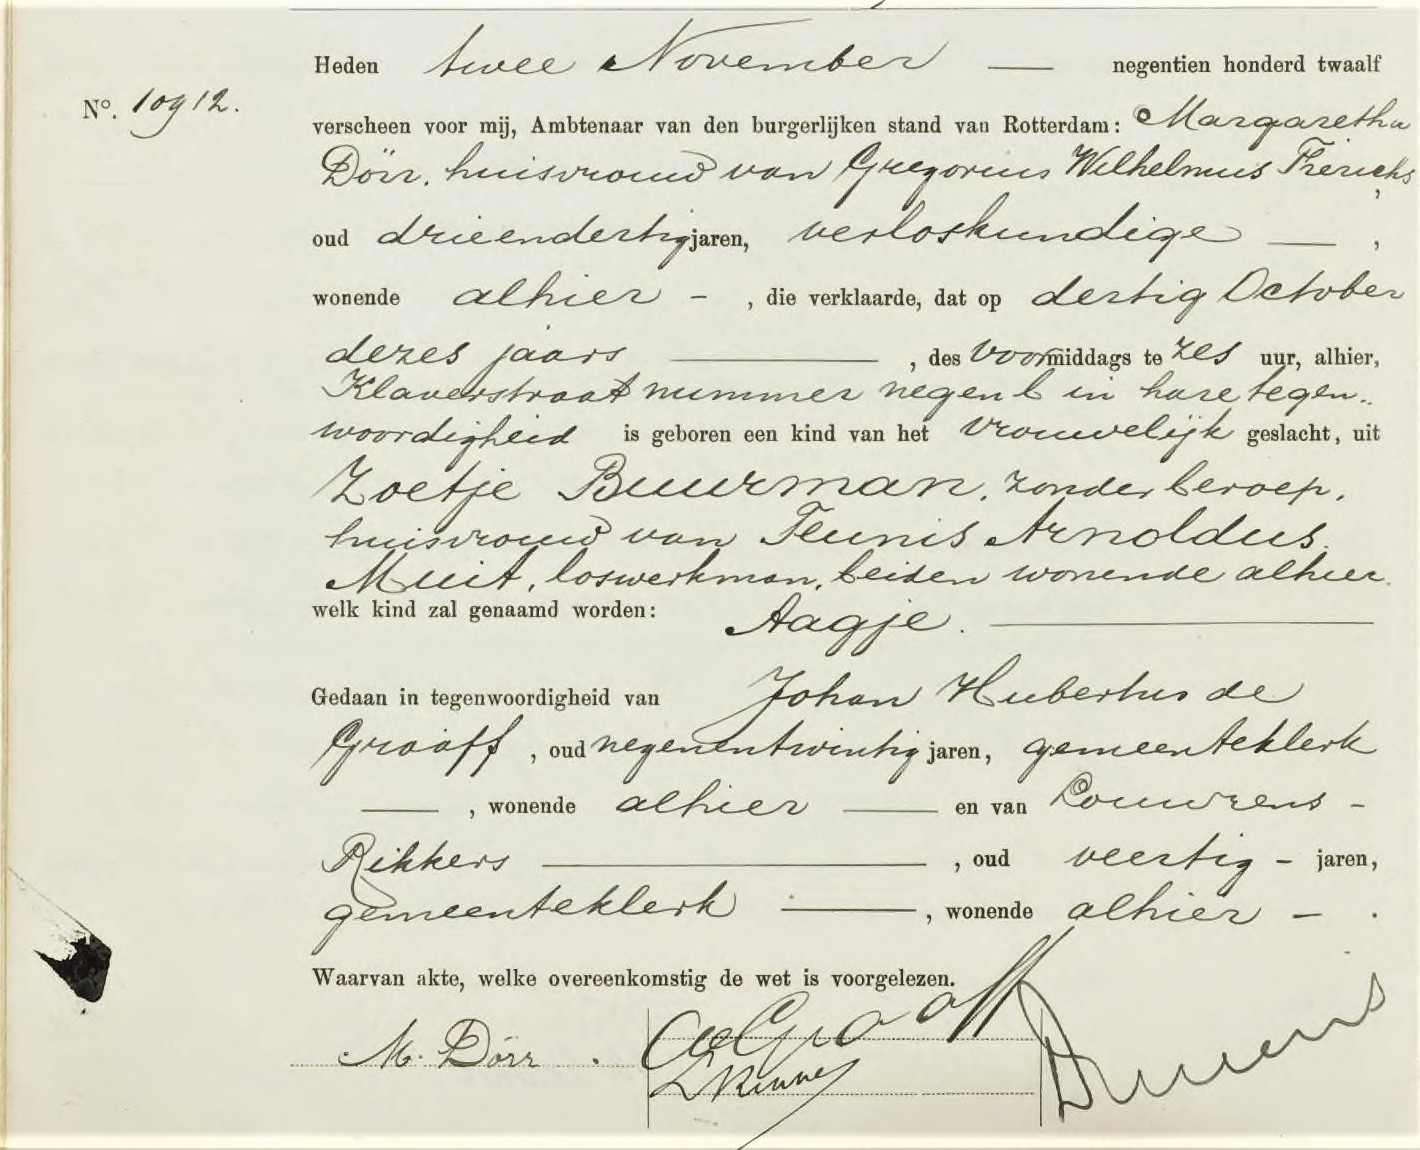 Heden twee November — negentien honderd twaalf
No. 10912.
verscheen voor mij, Ambtenaar van den burgerlijken stand van Rotterdam: Margaretha
Dörr, huisvrouw van Gregorius Wilhelmus Frerichs,
oud drieendertig jaren, verloskundige — ,
wonende alhier - , die verklaarde, dat op dertig October
dezes jaars — , des Voormiddags te zes uur, alhier,
Klaverstraat nummer negen b in hare tegen-
woordigheid is geboren een kind van het vrouwelijk geslacht, uit
Zoetje Buurman, zonder beroep,
huisvrouw van Teunis Arnoldus
Muit, loswerkman, beiden wonende alhier.
welk kind zal genaamd worden: Aagje. —
Gedaan in tegenwoordigheid van Johan Hubertus de
Graaff , oud negenentwintig jaren, gemeenteklerk
— , wonende alhier — en van Louwrens -
Rikkers — , oud veertig - jaren,
gemeenteklerk — , wonende alhier - .
Waarvan akte, welke overeenkomstig de wet is voorgelezen.
M. Dörr. de Graaff